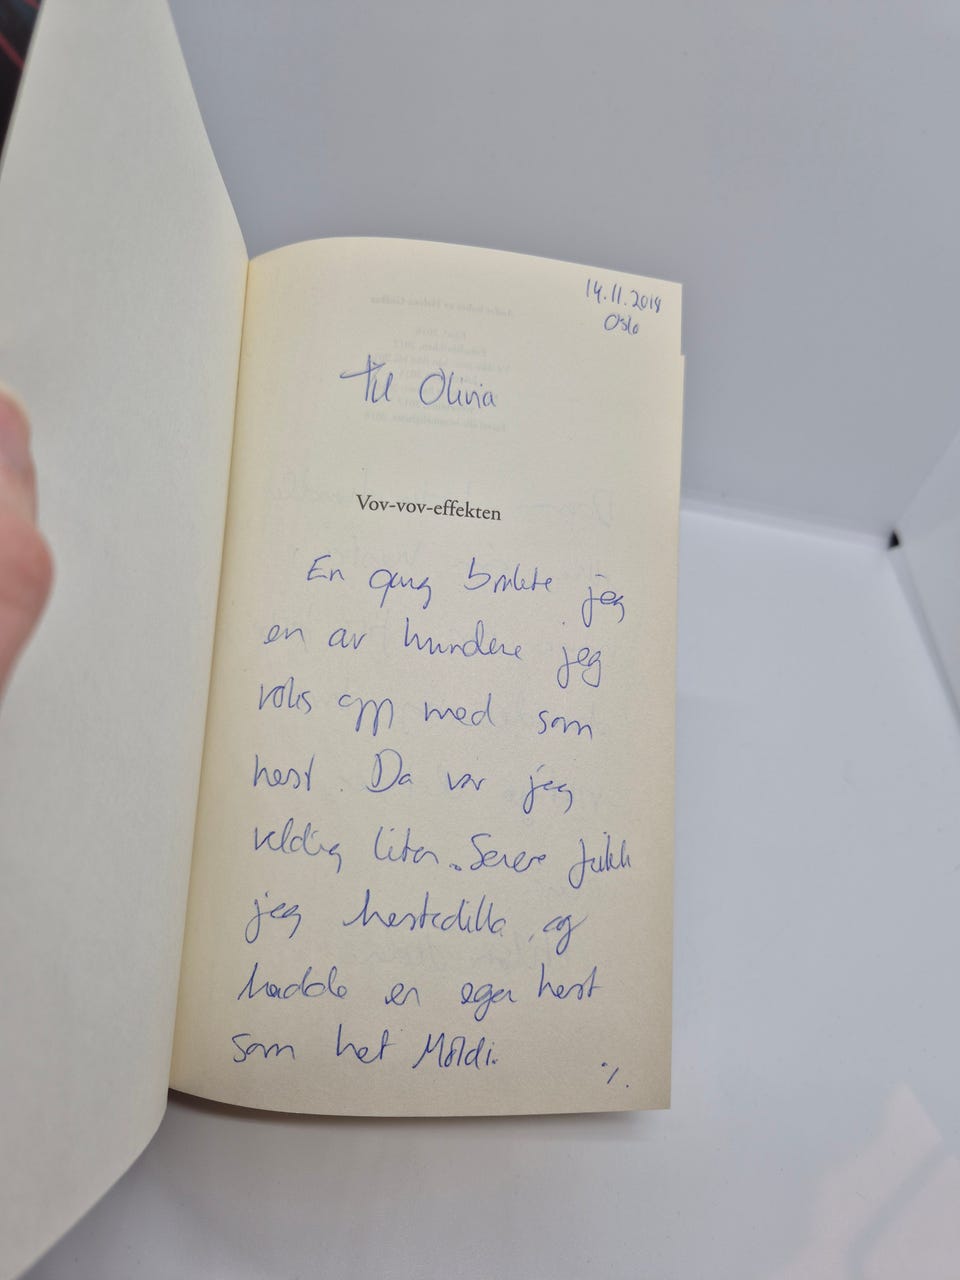 14.11.2018
Oslo
Til Olivia
Vov-vov-effekten
En gang brukte jeg
en av hundene jeg
voks opp med som
hest. Da var jeg
veldig liten. Senere fikk
jeg hestedilla, og
hadde en egen hest
som het Moldi.
./.